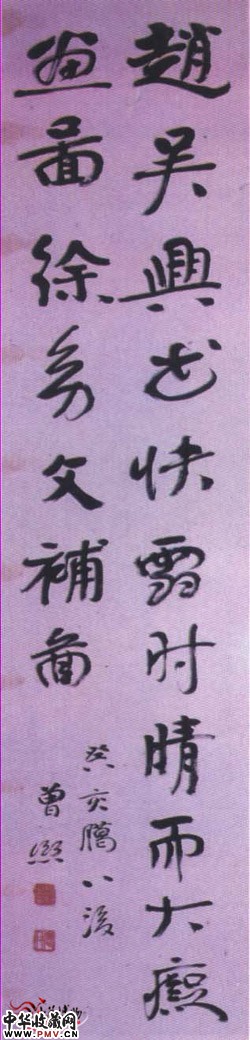 趙吴興书快雪时晴而大癡
画啚徐幼文補啚
癸亥臈八後
曾熙
中华收藏网
WWW.PMV.CN